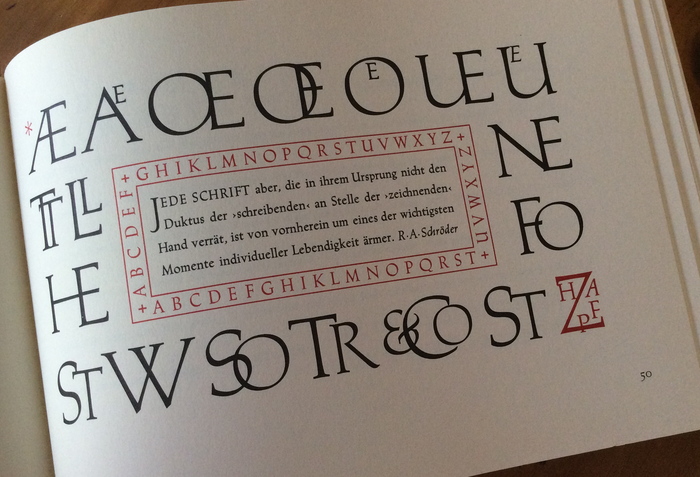 * Æ AE Œ OE OE UE UE
TT LL
NE
HE
FO
+ABCDEF
+GHIKLMNOPQRSTUVWXYZ+
JEDE SCHRIFT aber, die in ihrem Ursprung nicht den
Duktus der ›schreibenden‹ an Stelle der ›zeichnenden‹
Hand verrät, ist von vornherein um eines der wichtigsten
Momente individueller Lebendigkeit ärmer. R·A·Schröder
ABCDEFGHIKLMNOPQRST+
UVWXYZ
ST W SO TR &CO ST HZAPF
50